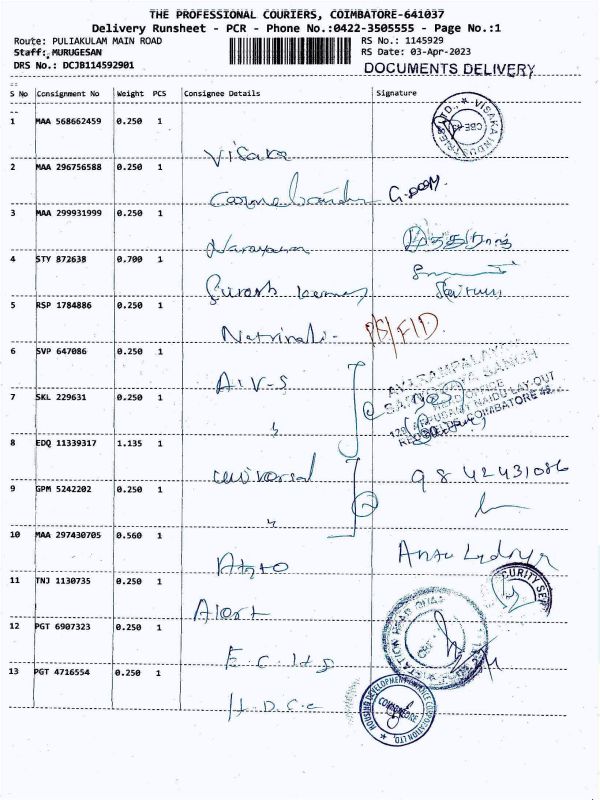 THE PROFESSIONAL COURIERS, COIMBATORE-641037
Delivery Runsheet - PCR - Phone No.:0422-3505555 - Page No.:1
Route: PULIAKULAM MAIN ROAD
RS No.: 1145929
Staff: MURUGESAN
RS Date: 03-Apr-2023
DRS No.: DCJB114592901
DOCUMENTS DELIVERY
S No Consignment No Weight PCS Consignee Details Signature
1 MAA 568662459 0.250 1
Visaka
2 MAA 296756588 0.250 1
3 MAA 299931999 0.250 1
Narayana
4 STY 872638 0.700 1
Suresh kumar
5 RSP 1784886 0.250 1
6 SVP 647086 0.250 1
A.I.V-S
7 SKL 229631 0.250 1
8 EDQ 11339317 1.135 1
universal 9842431086
9 GPM 5242202 0.250 1
10 MAA 297430705 0.560 1
11 TNJ 1130735 0.250 1
Alert
12 PGT 6907323 0.250 1
13 PGT 4716554 0.250 1
HOUSING DEVELOPMENT FINANCE CORPORATION LTD.
COIMBATORE